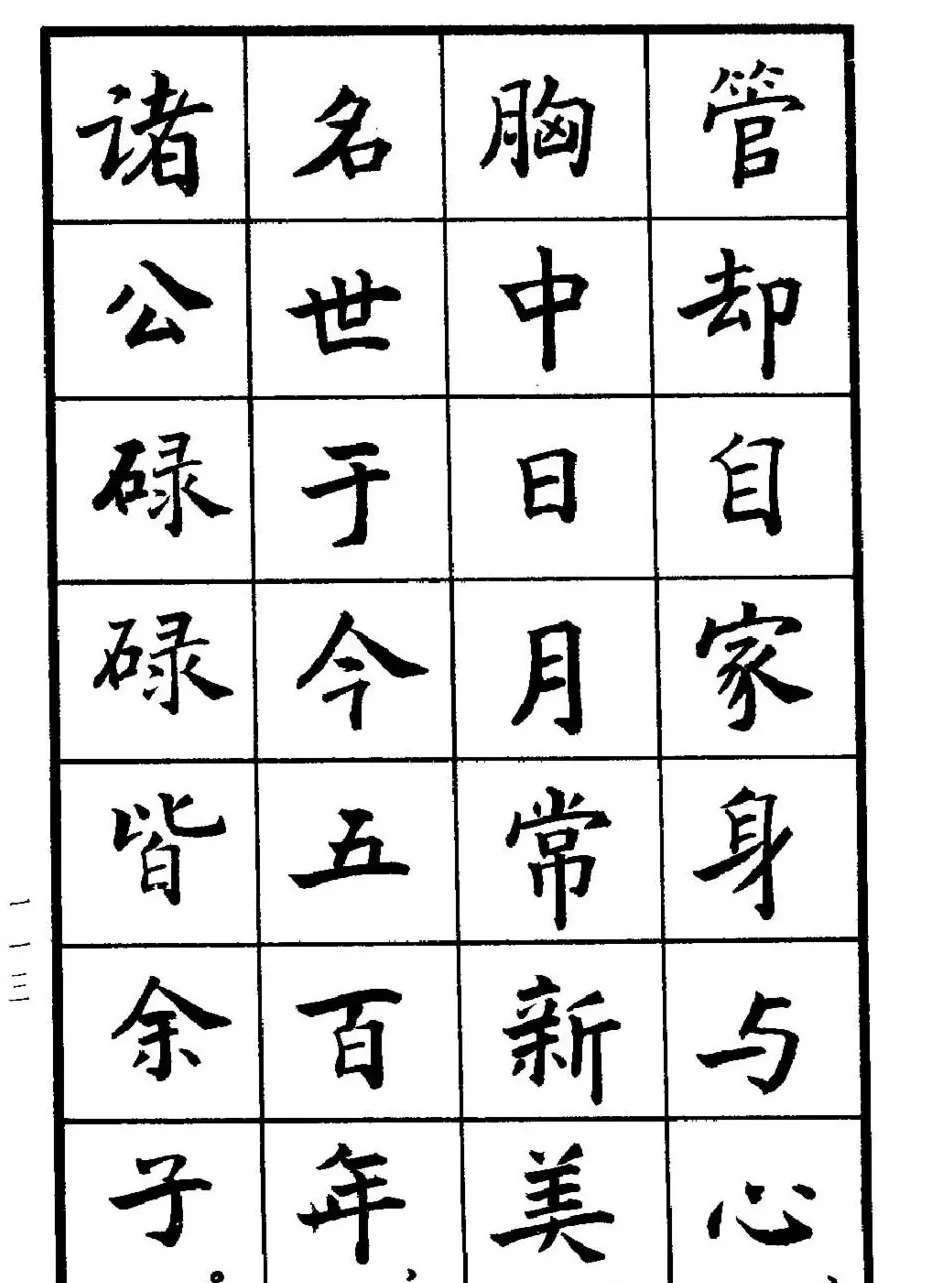 管却自家身与心、
胸中日月常新美
名世于今五百年，
诸公碌碌皆余子。
一一三